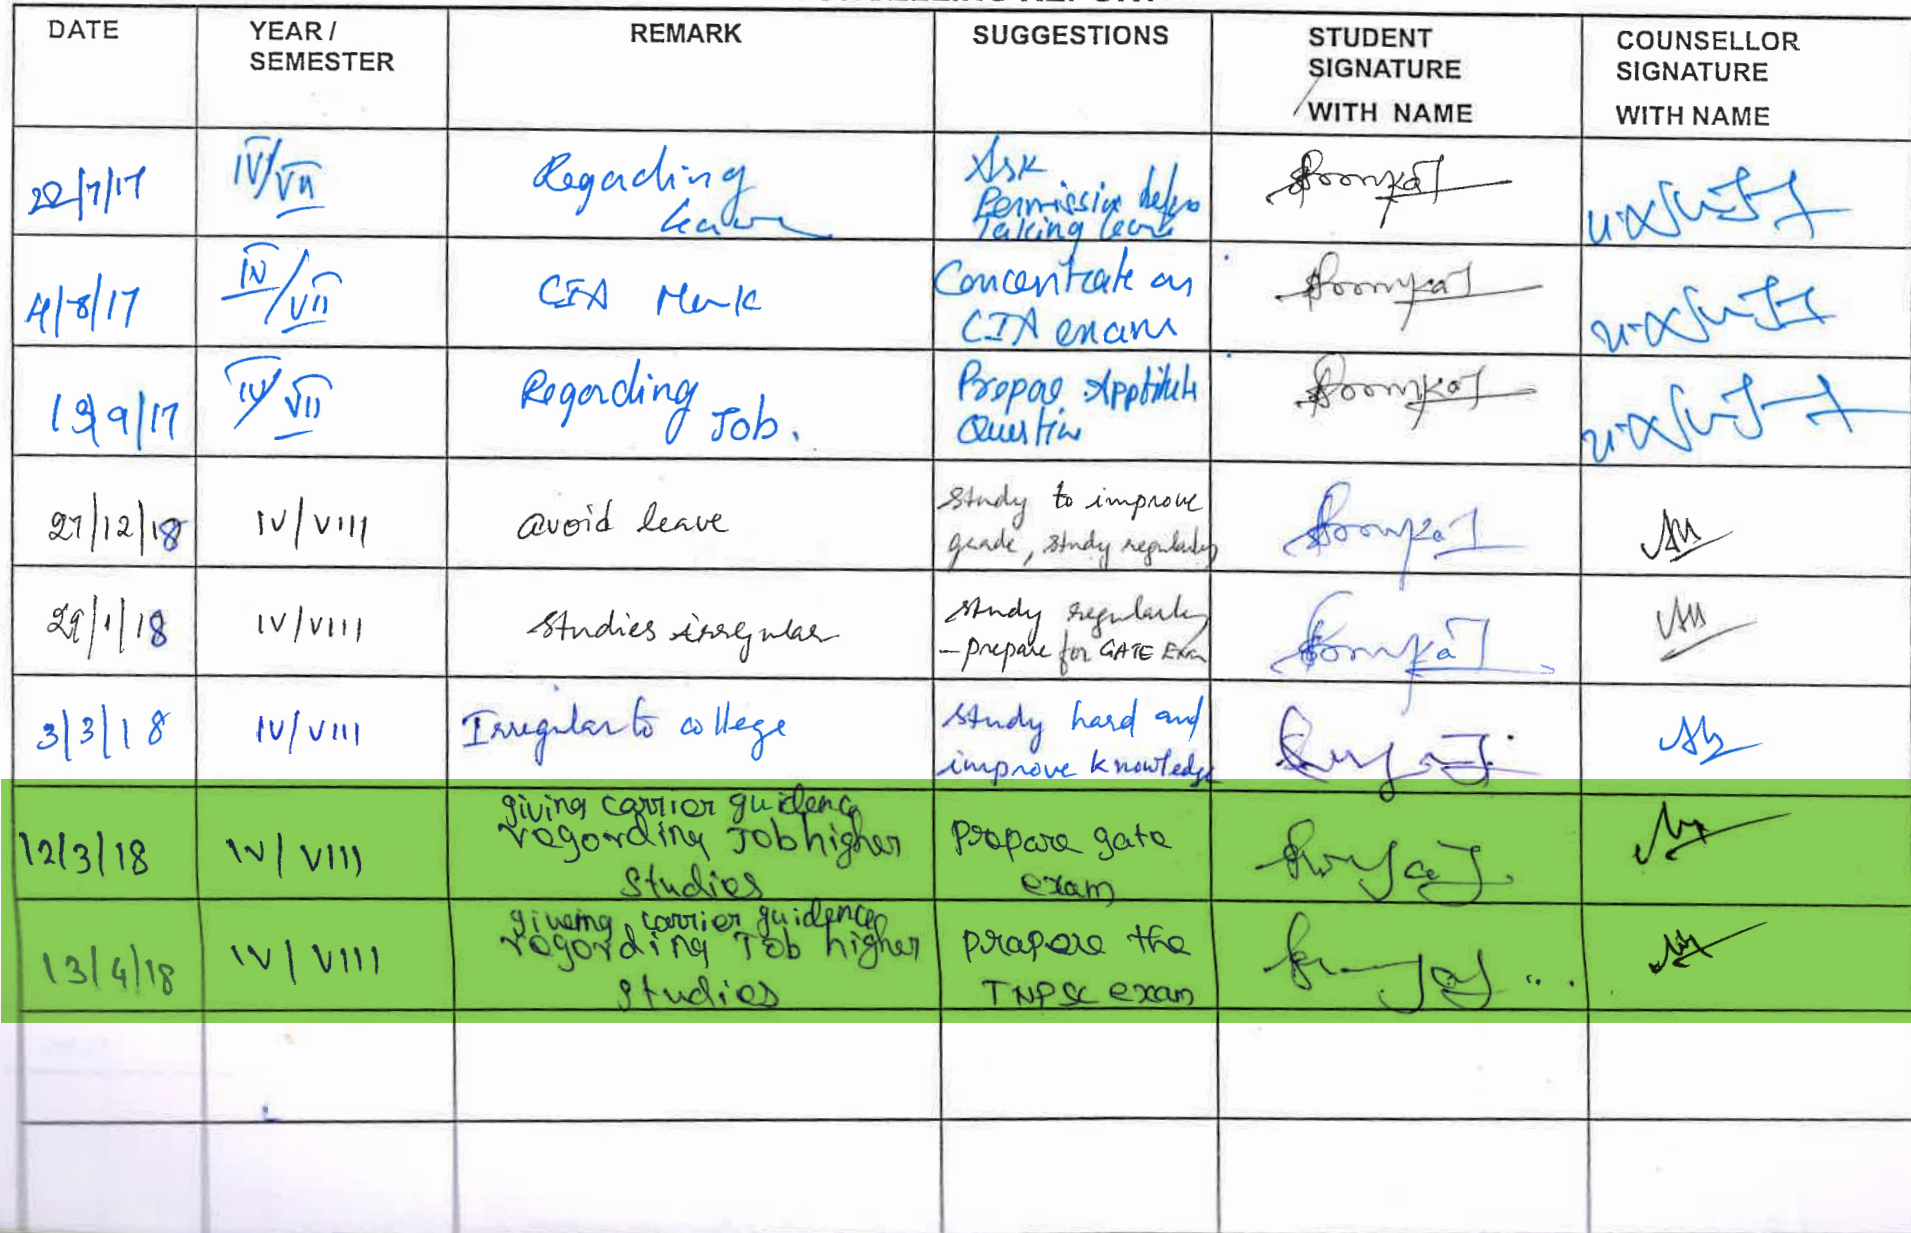 DATE
YEAR /
SEMESTER
REMARK
SUGGESTIONS
STUDENT
SIGNATURE
WITH NAME
COUNSELLOR
SIGNATURE
WITH NAME
22/7/17
IV/VII
Regarding
leave
Ask
Permission before
Taking leave
4/8/17
IV/VII
CIA Mark
Concentrate on
CIA exams
13/9/17
IV/VII
Regarding
Job.
Prepare Apptitude
Question
27/12/18
IV/VIII
avoid leave
study to improve
grade, study regularly
29/1/18
IV/VIII
studies irregular
study regularly
- prepare for GATE Exam
3/3/18
IV/VIII
Irregular to college
study hard and
improve knowledge
12/3/18
IV/VIII
giving carrier guidence
regording Job higher
studies
prepare gate
exam
13/4/18
IV/VIII
giveing carrier guidence
regording Job higher
studies
prapare the
TNPSC exam